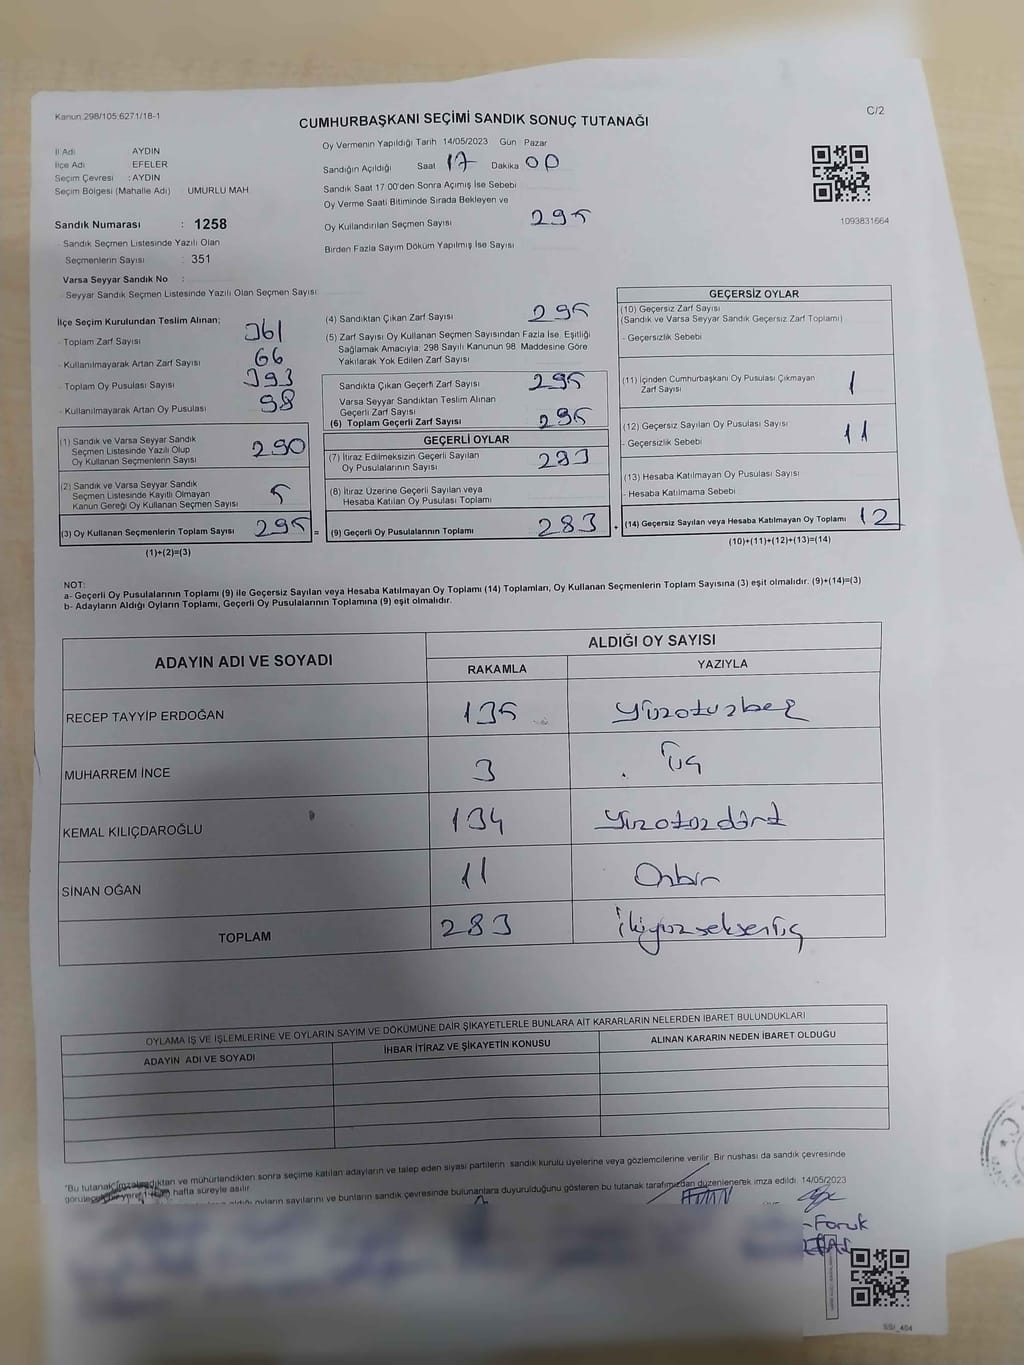 Kanun.298/105.6271/18-1
C/2
CUMHURBAŞKANI SEÇİMİ SANDIK SONUÇ TUTANAĞI
İl Adı AYDIN
İlçe Adı EFELER
Seçim Çevresi : AYDIN
Seçim Bölgesi (Mahalle Adı) UMURLU MAH.
Sandık Numarası : 1258
- Sandık Seçmen Listesinde Yazılı Olan
Seçmenlerin Sayısı : 351
Varsa Seyyar Sandık No :
- Seyyar Sandık Seçmen Listesinde Yazılı Olan Seçmen Sayısı:
Oy Vermenin Yapıldığı Tarih 14/05/2023 Gün Pazar
Sandığın Açıldığı Saat 17 Dakika 00
Sandık Saat 17:00'den Sonra Açılmış İse Sebebi
Oy Verme Saati Bitiminde Sırada Bekleyen ve
Oy Kullandırılan Seçmen Sayısı 295
Birden Fazla Sayım Döküm Yapılmış İse Sayısı
1093831664
İlçe Seçim Kurulundan Teslim Alınan;
- Toplam Zarf Sayısı 361
- Kullanılmayarak Artan Zarf Sayısı 66
- Toplam Oy Pusulası Sayısı 393
- Kullanılmayarak Artan Oy Pusulası 98
(1) Sandık ve Varsa Seyyar Sandık
Seçmen Listesinde Yazılı Olup
Oy Kullanan Seçmenlerin Sayısı 290
(2) Sandık ve Varsa Seyyar Sandık
Seçmen Listesinde Kayıtlı Olmayan
Kanun Gereği Oy Kullanan Seçmen Sayısı 5
(3) Oy Kullanan Seçmenlerin Toplam Sayısı 295 =
(1)+(2)=(3)
(4) Sandıktan Çıkan Zarf Sayısı 295
(5) Zarf Sayısı Oy Kullanan Seçmen Sayısından Fazla İse, Eşitliği
Sağlamak Amacıyla; 298 Sayılı Kanunun 98. Maddesine Göre
Yakılarak Yok Edilen Zarf Sayısı
Sandıkta Çıkan Geçerli Zarf Sayısı 295
Varsa Seyyar Sandıktan Teslim Alınan
Geçerli Zarf Sayısı
(6) Toplam Geçerli Zarf Sayısı 295
GEÇERLİ OYLAR
(7) İtiraz Edilmeksizin Geçerli Sayılan
Oy Pusulalarının Sayısı 283
(8) İtiraz Üzerine Geçerli Sayılan veya
Hesaba Katılan Oy Pusulası Toplamı
(9) Geçerli Oy Pusulalarının Toplamı 283 +
GEÇERSİZ OYLAR
(10) Geçersiz Zarf Sayısı
(Sandık ve Varsa Seyyar Sandık Geçersiz Zarf Toplamı)
- Geçersizlik Sebebi
(11) İçinden Cumhurbaşkanı Oy Pusulası Çıkmayan
Zarf Sayısı 1
(12) Geçersiz Sayılan Oy Pusulası Sayısı
- Geçersizlik Sebebi 11
(13) Hesaba Katılmayan Oy Pusulası Sayısı
- Hesaba Katılmama Sebebi
(14) Geçersiz Sayılan veya Hesaba Katılmayan Oy Toplamı 12
(10)+(11)+(12)+(13)=(14)
NOT:
a- Geçerli Oy Pusulalarının Toplamı (9) ile Geçersiz Sayılan veya Hesaba Katılmayan Oy Toplamı (14) Toplamları, Oy Kullanan Seçmenlerin Toplam Sayısına (3) eşit olmalıdır. (9)+(14)=(3)
b- Adayların Aldığı Oyların Toplamı, Geçerli Oy Pusulalarının Toplamına (9) eşit olmalıdır.
ADAYIN ADI VE SOYADI ALDIĞI OY SAYISI
RAKAMLA YAZIYLA
RECEP TAYYİP ERDOĞAN 135 Yüzotuzbeş
MUHARREM İNCE 3 Üç
KEMAL KILIÇDAROĞLU 134 Yüzotuzdört
SİNAN OĞAN 11 Onbir
TOPLAM 283 İkiyüzseksenüç
OYLAMA İŞ VE İŞLEMLERİNE VE OYLARIN SAYIM VE DÖKÜMÜNE DAİR ŞİKAYETLERLE BUNLARA AİT KARARLARIN NELERDEN İBARET BULUNDUKLARI
ADAYIN ADI VE SOYADI İHBAR İTİRAZ VE ŞİKAYETİN KONUSU ALINAN KARARIN NEDEN İBARET OLDUĞU
"Bu tutanak, imzalandıktan ve mühürlendikten sonra seçime katılan adayların ve talep eden siyasi partilerin sandık kurulu üyelerine veya gözlemcilerine verilir. Bir nushası da sandık çevresinde
hafta süreyle asılır.
oyların sayılarını ve bunların sandık çevresinde bulunanlara duyurulduğunu gösteren bu tutanak tarafımızdan düzenlenerek imza edildi. 14/05/2023
Foruk